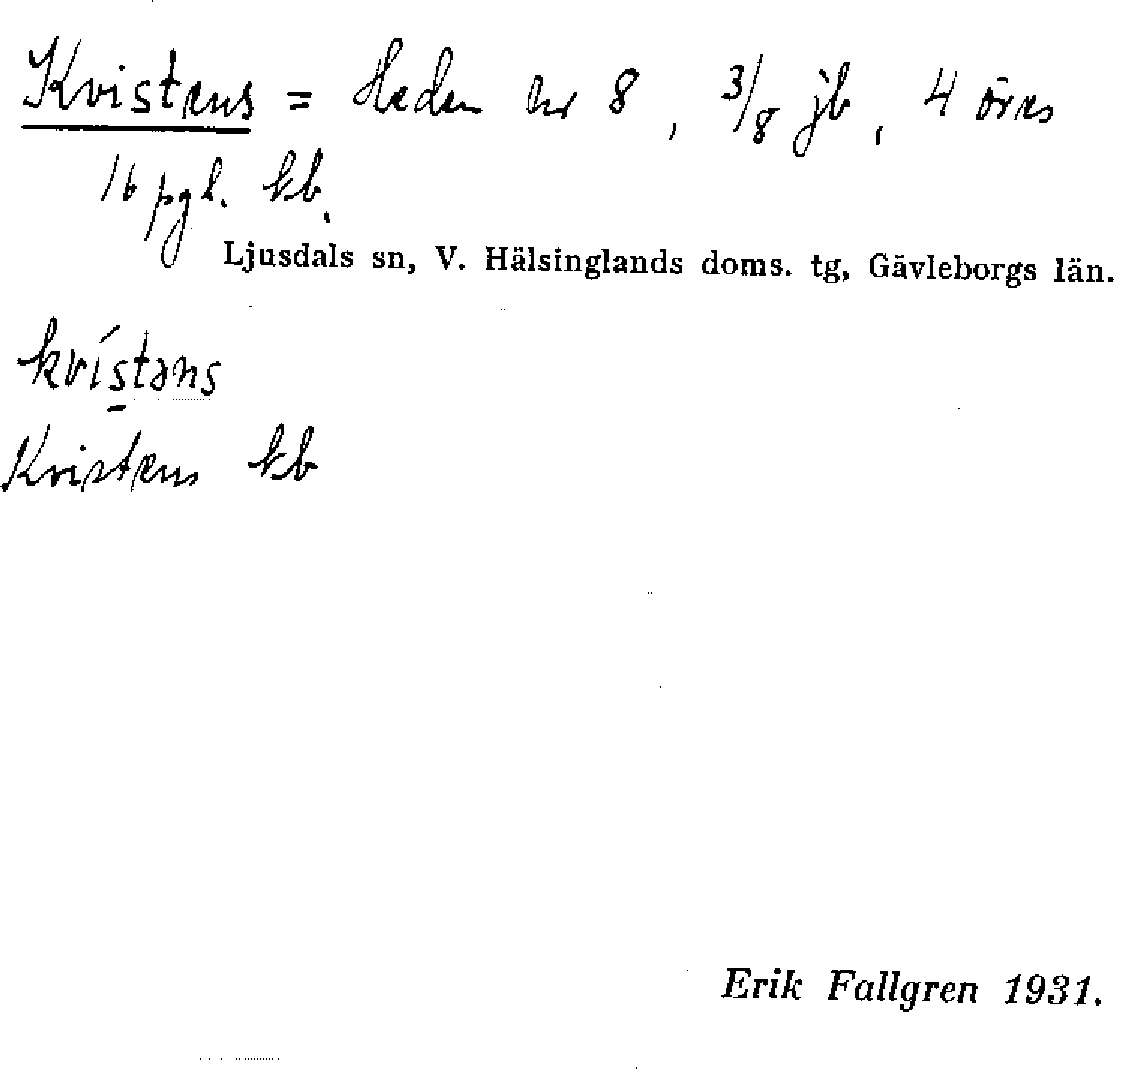 Kvistens = Heden nr 8, 3/8 jb, 4 öres
16 pgl. kb.
Ljusdals sn, V. Hälsinglands doms. tg, Gävleborgs län.
kvístəns
Kvistens kb
Erik Fallgren 1931.